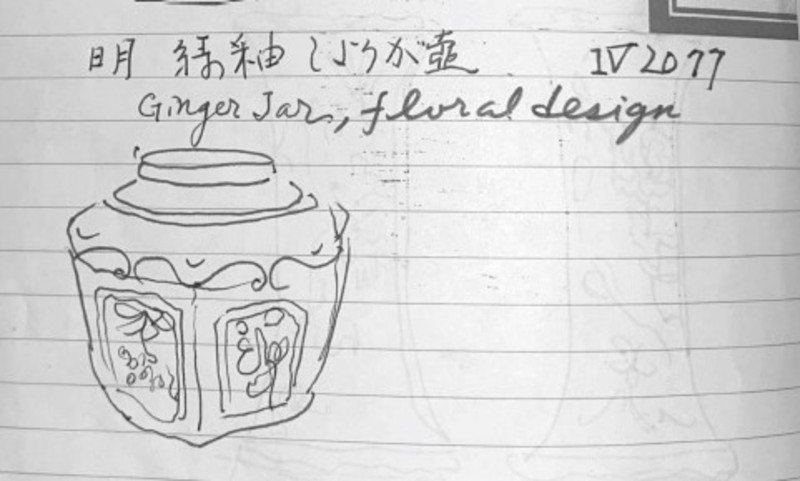 明 緑釉 しょうが壺 IV 2077
Ginger Jar, floral design